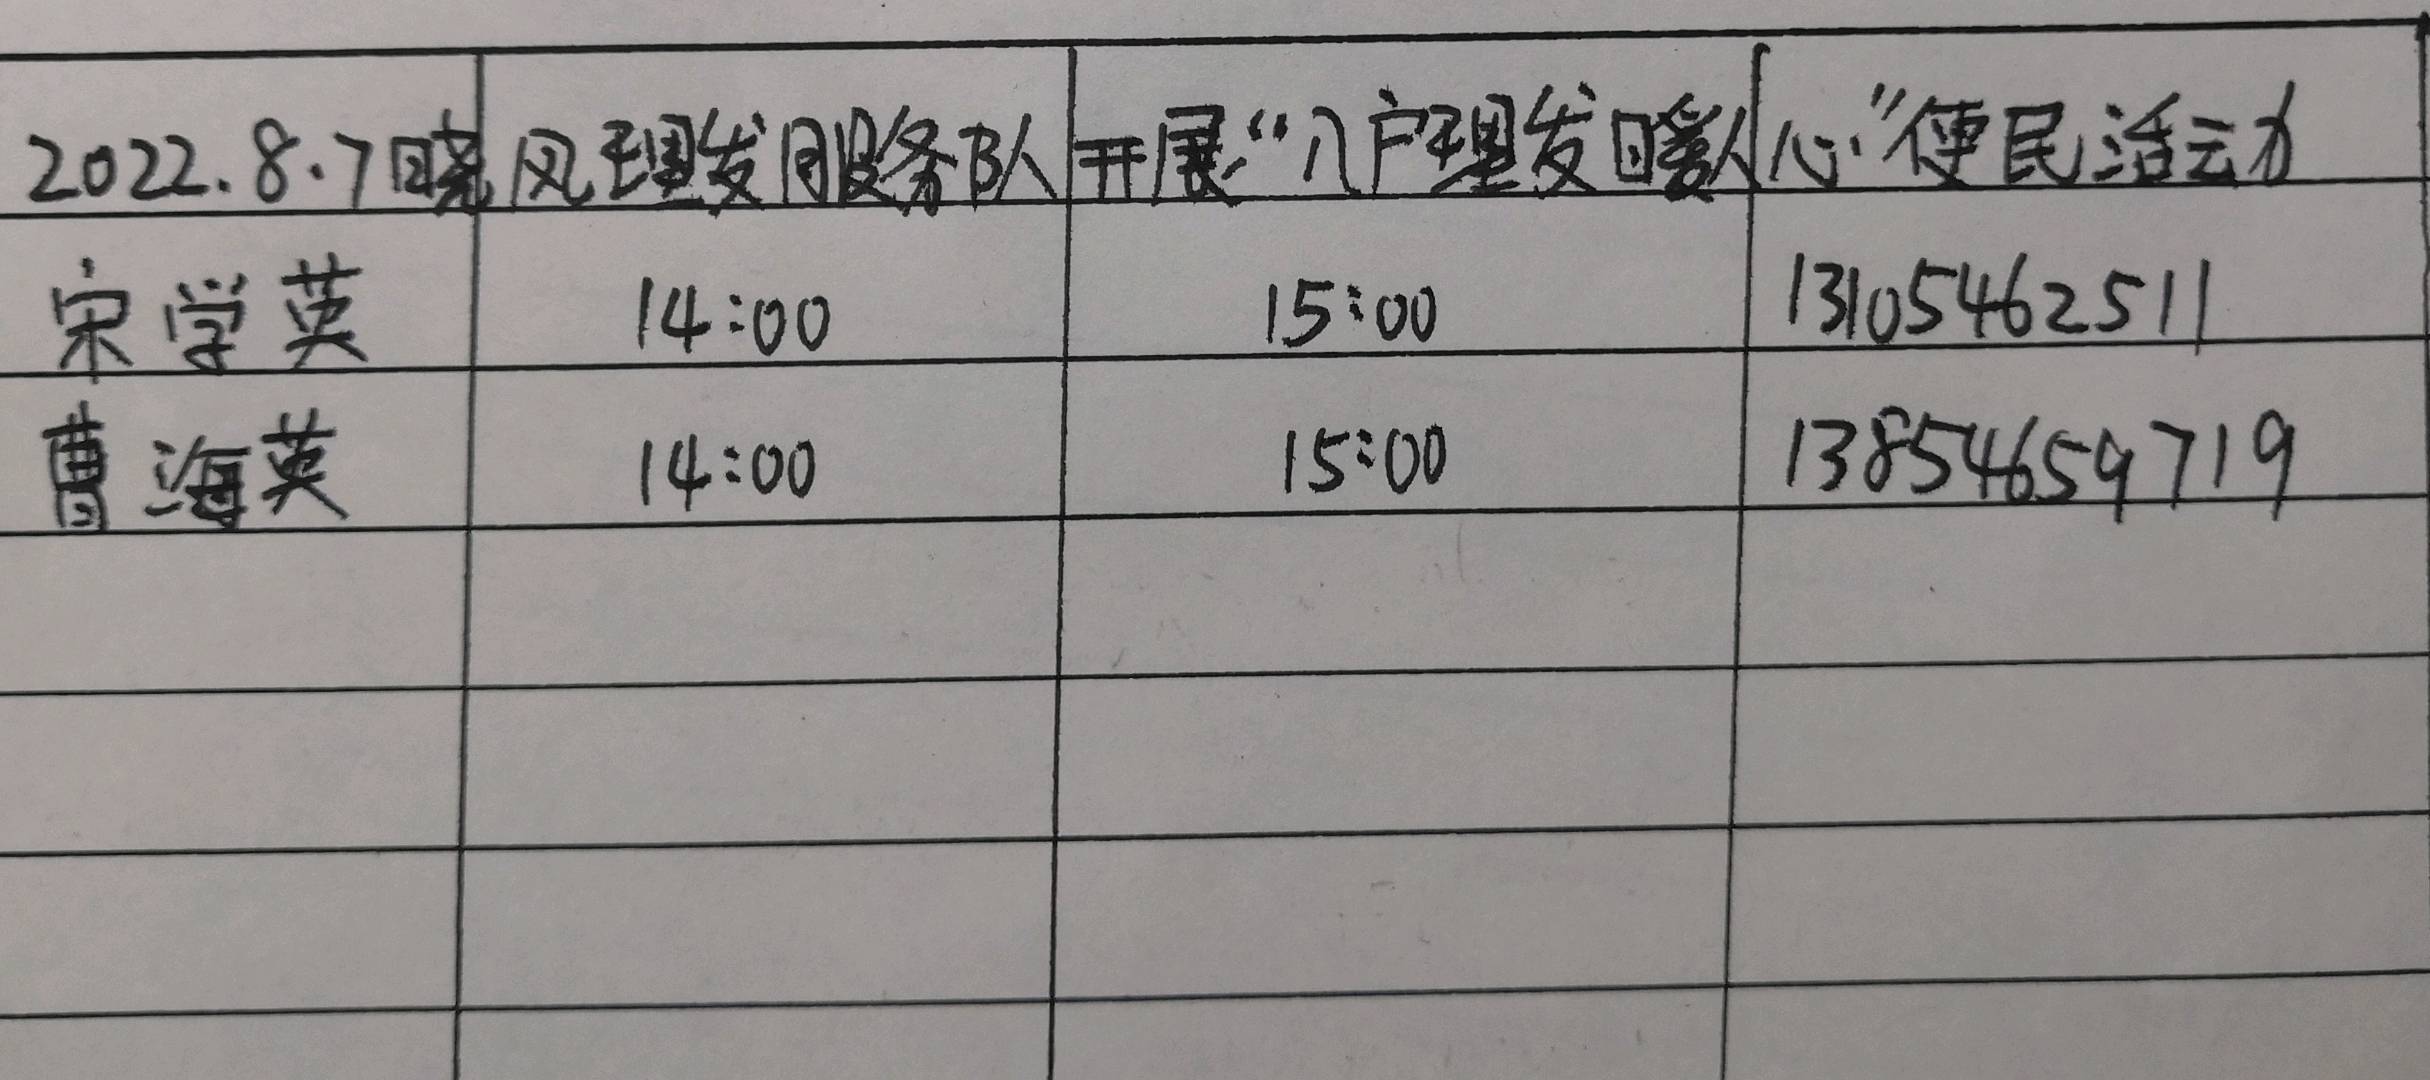 2022.8.7晓风理发服务队开展“入户理发暖人心”便民活动
宋学英 14:00 15:00 13105462511
曹海英 14:00 15:00 13854659719